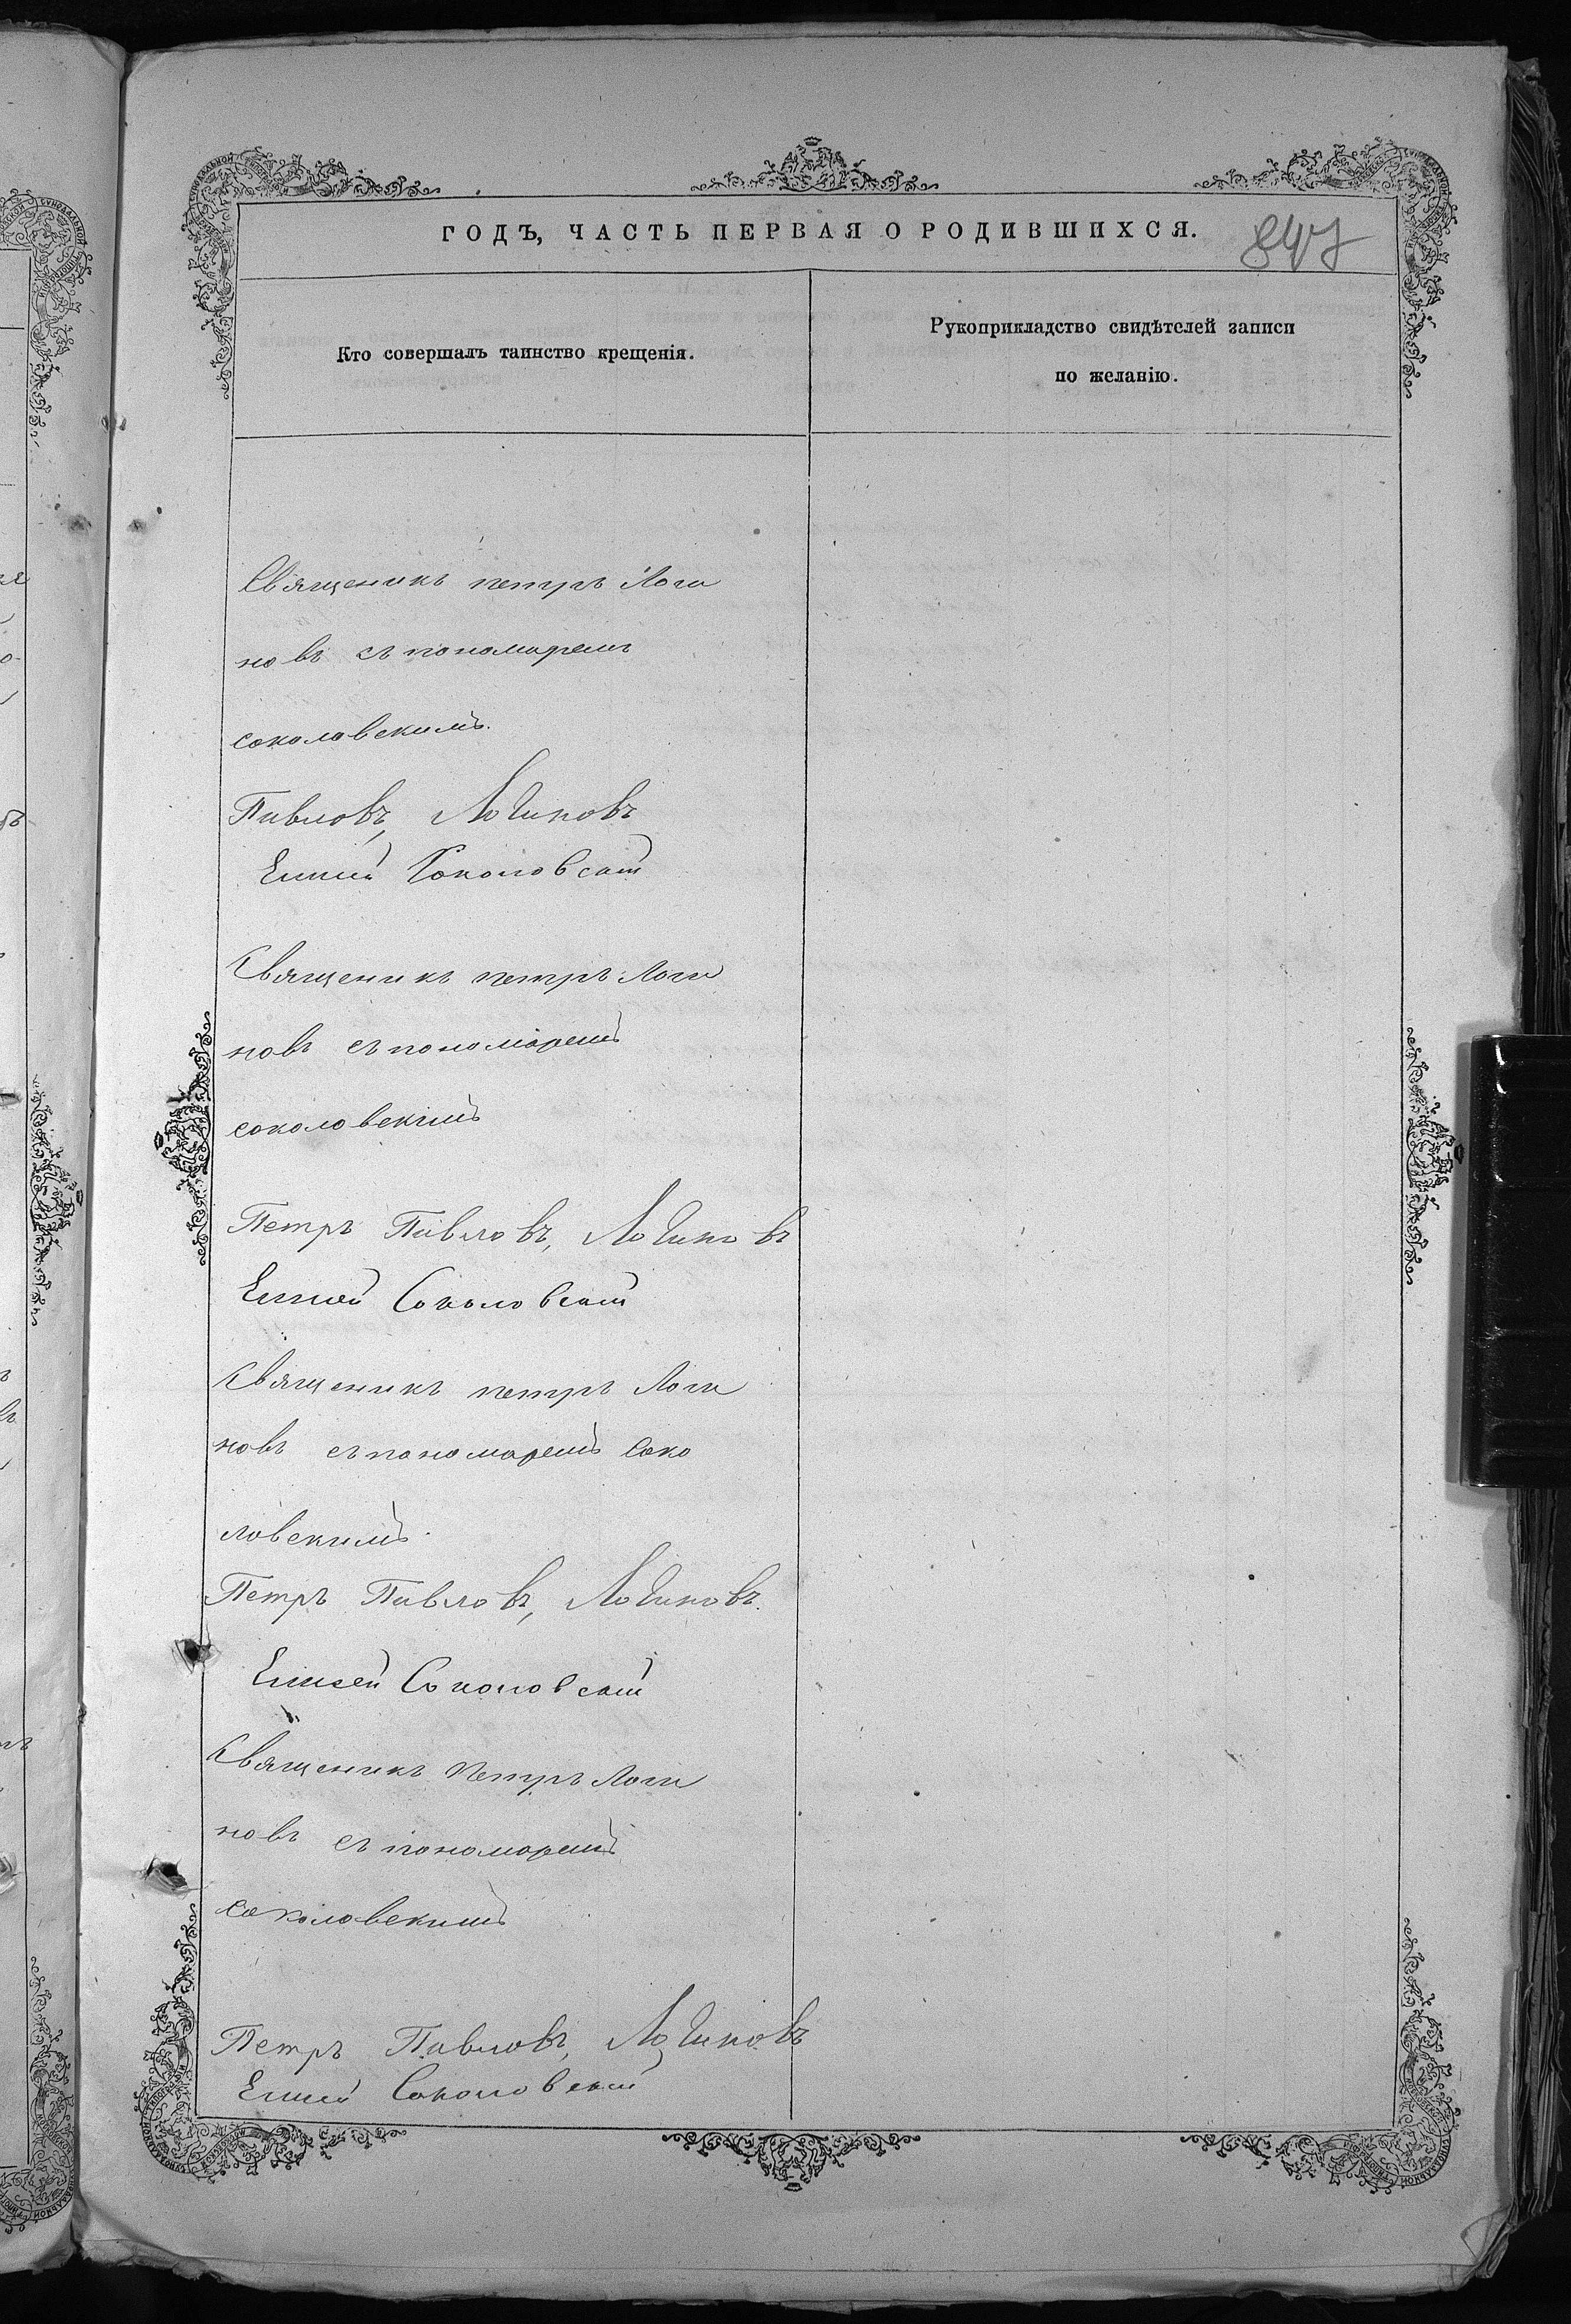 ГОДЪ, ЧАСТЬ ПЕРВАЯ О РОДИВШИХСЯ.
847
Кто совершалъ таинство крещенія.
Рукоприкладство свидѣтелей записи
по желанію.
Священикъ петръ Логи
новъ съ пономаремъ
соколовскимъ.
Павловъ, Логиновъ
Елисей Соколовскій
Священикъ петръ Логи
новъ съ пономаремъ
соколовскимъ
Петръ Павловъ, Логиновъ
Елисей Соколовскій
Священикъ петръ Логи
новъ съ пономаремъ Соко
ловскимъ.
Петръ Павловъ, Логиновъ.
Елисей Соколовскій
Священикъ Петръ Логи
новъ съ пономаремъ
Соколовскимъ
Петръ Павловъ, Логиновъ
Елисей Соколовскій